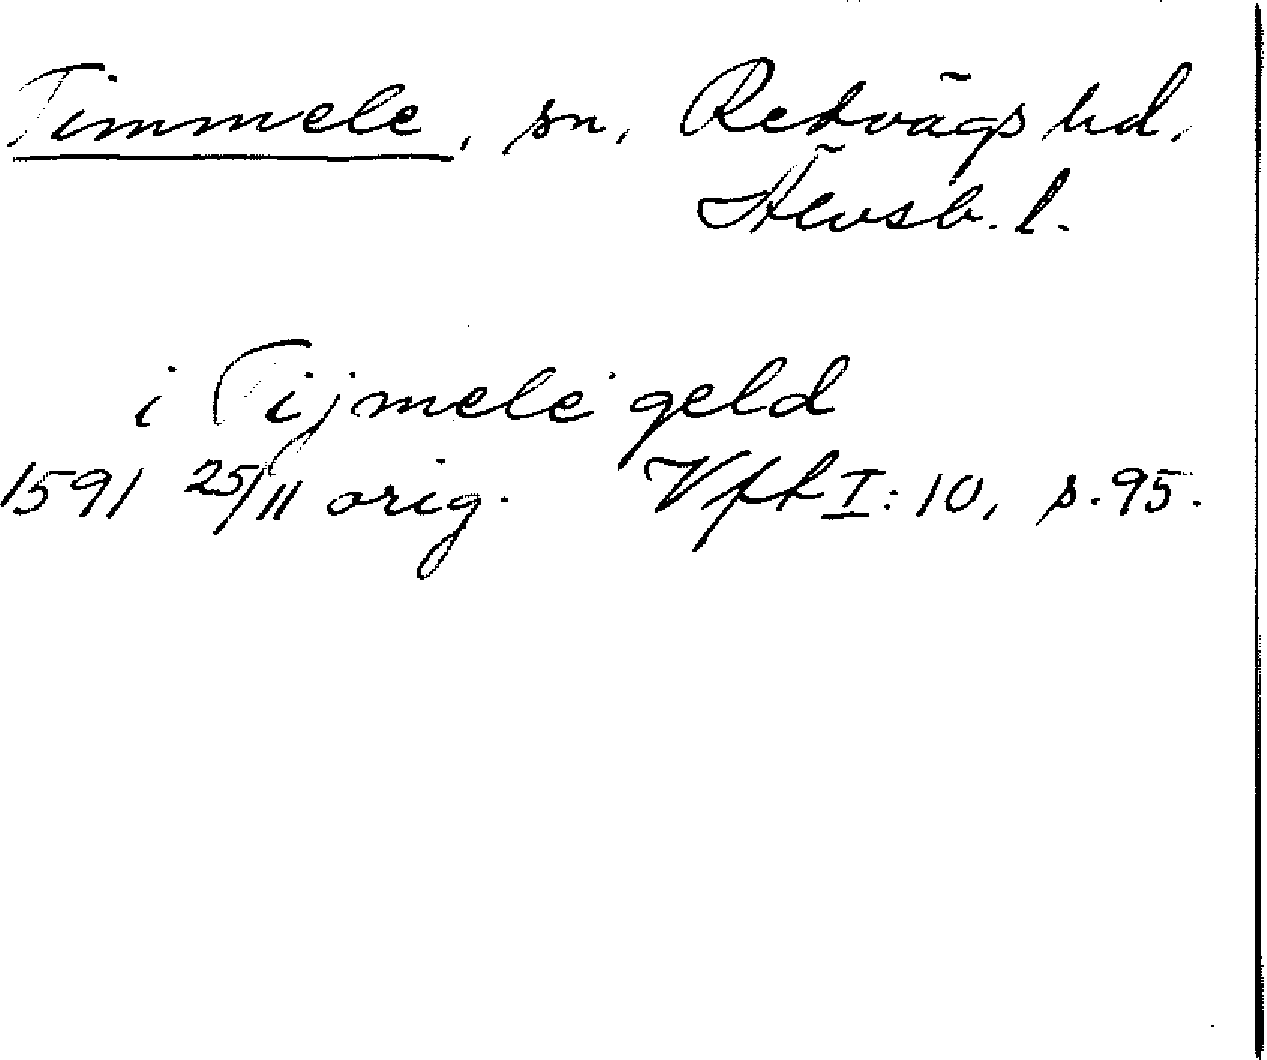 Timmele, sn, Redvägs hd,
Älvsb. l.
i Tijmele geld
1591 25/11 orig. Vfft I: 10, s. 95.